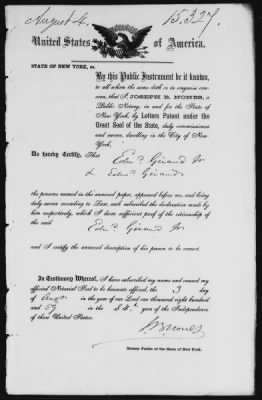 August 4.
15.327.
United States of America.
STATE OF NEW YORK, ss.
By this Public Instrument be it known,
to all whom the same doth or in anywise con-
cern, that I, JOSEPH B. NONES, a
Public Notary, in and for the State of
New York, by Letters Patent under the
Great Seal of the State, duly commissioned
and sworn, dwelling in the City of New
York,
Do hereby Certify, That Edwd Giraud Jr
& Edwd Giraud
the persons named in the annexed paper, appeared before me, and being
duly sworn according to Law, each subscribed the declaration made by
him respectively, which I deem sufficient proof of the citizenship of
the said Edwd Giraud Jr
and I certify the annexed description of his person to be correct.
In Testimony Whereof, I have subscribed my name and caused my
official Notarial Seal to be hereunto affixed, the 3 day
of Augt in the year of our Lord one thousand eight hundred
and 59 in the 84th year of the Independence
of these United States.
J. B. Nones
Notary Public of the State of New York.